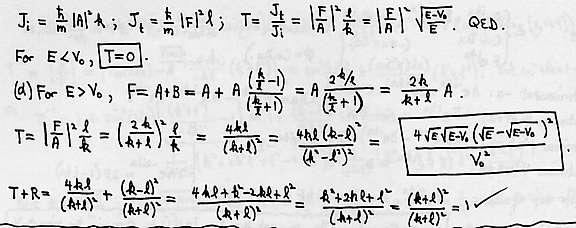 Jᵢ = ħ/m |A|² k ; Jₜ = ħ/m |F|² l ; T = Jₜ/Jᵢ = |F/A|² l/k = |F/A|² √((E-V₀)/E). QED.
For E < V₀, T=0.
(d) For E > V₀, F = A+B = A + A (k/l - 1)/(k/l + 1) = A (2k/l)/(k/l + 1) = 2k/(k+l) A.
T = |F/A|² l/k = (2k/(k+l))² l/k = 4kl/(k+l)² = 4kl(k-l)²/(k²-l²)² = 4√E √(E-V₀) (√E - √(E-V₀))²/V₀².
T+R = 4kl/(k+l)² + (k-l)²/(k+l)² = (4kl+k²-2kl+l²)/(k+l)² = (k²+2kl+l²)/(k+l)² = (k+l)²/(k+l)² = 1 ✓